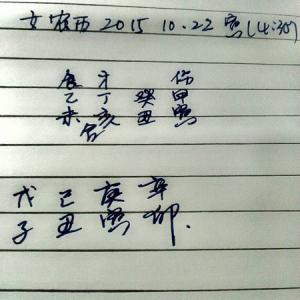 女 2015 10.22 寅(4:30)
食 才 伤
乙 丁 癸 甲
未 亥 丑 寅
戊 己 庚 辛
子 丑 寅 卯.